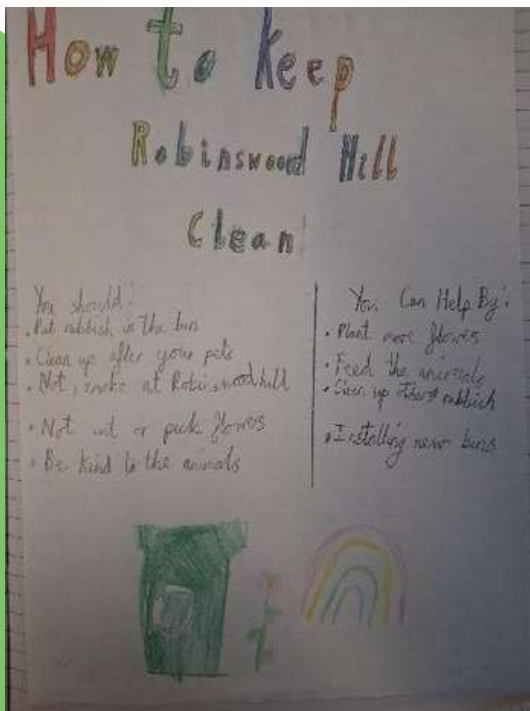 How to Keep
Robinswood Hill
Clean!
You should:
• Put rubbish in the bin
• Clean up after your pets
• Not smoke at Robinswood hill
• Not cut or pick flowers
• Be kind to the animals
You Can Help By:
• Plant more flowers
• Feed the animals
• Clean up rubbish
• Installing new bins